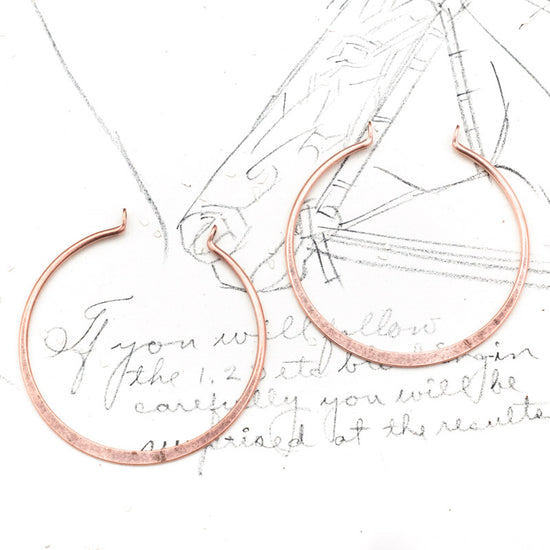 If you will follow
the 1, 2 etd be gin
carefully you will be
surprised at the results